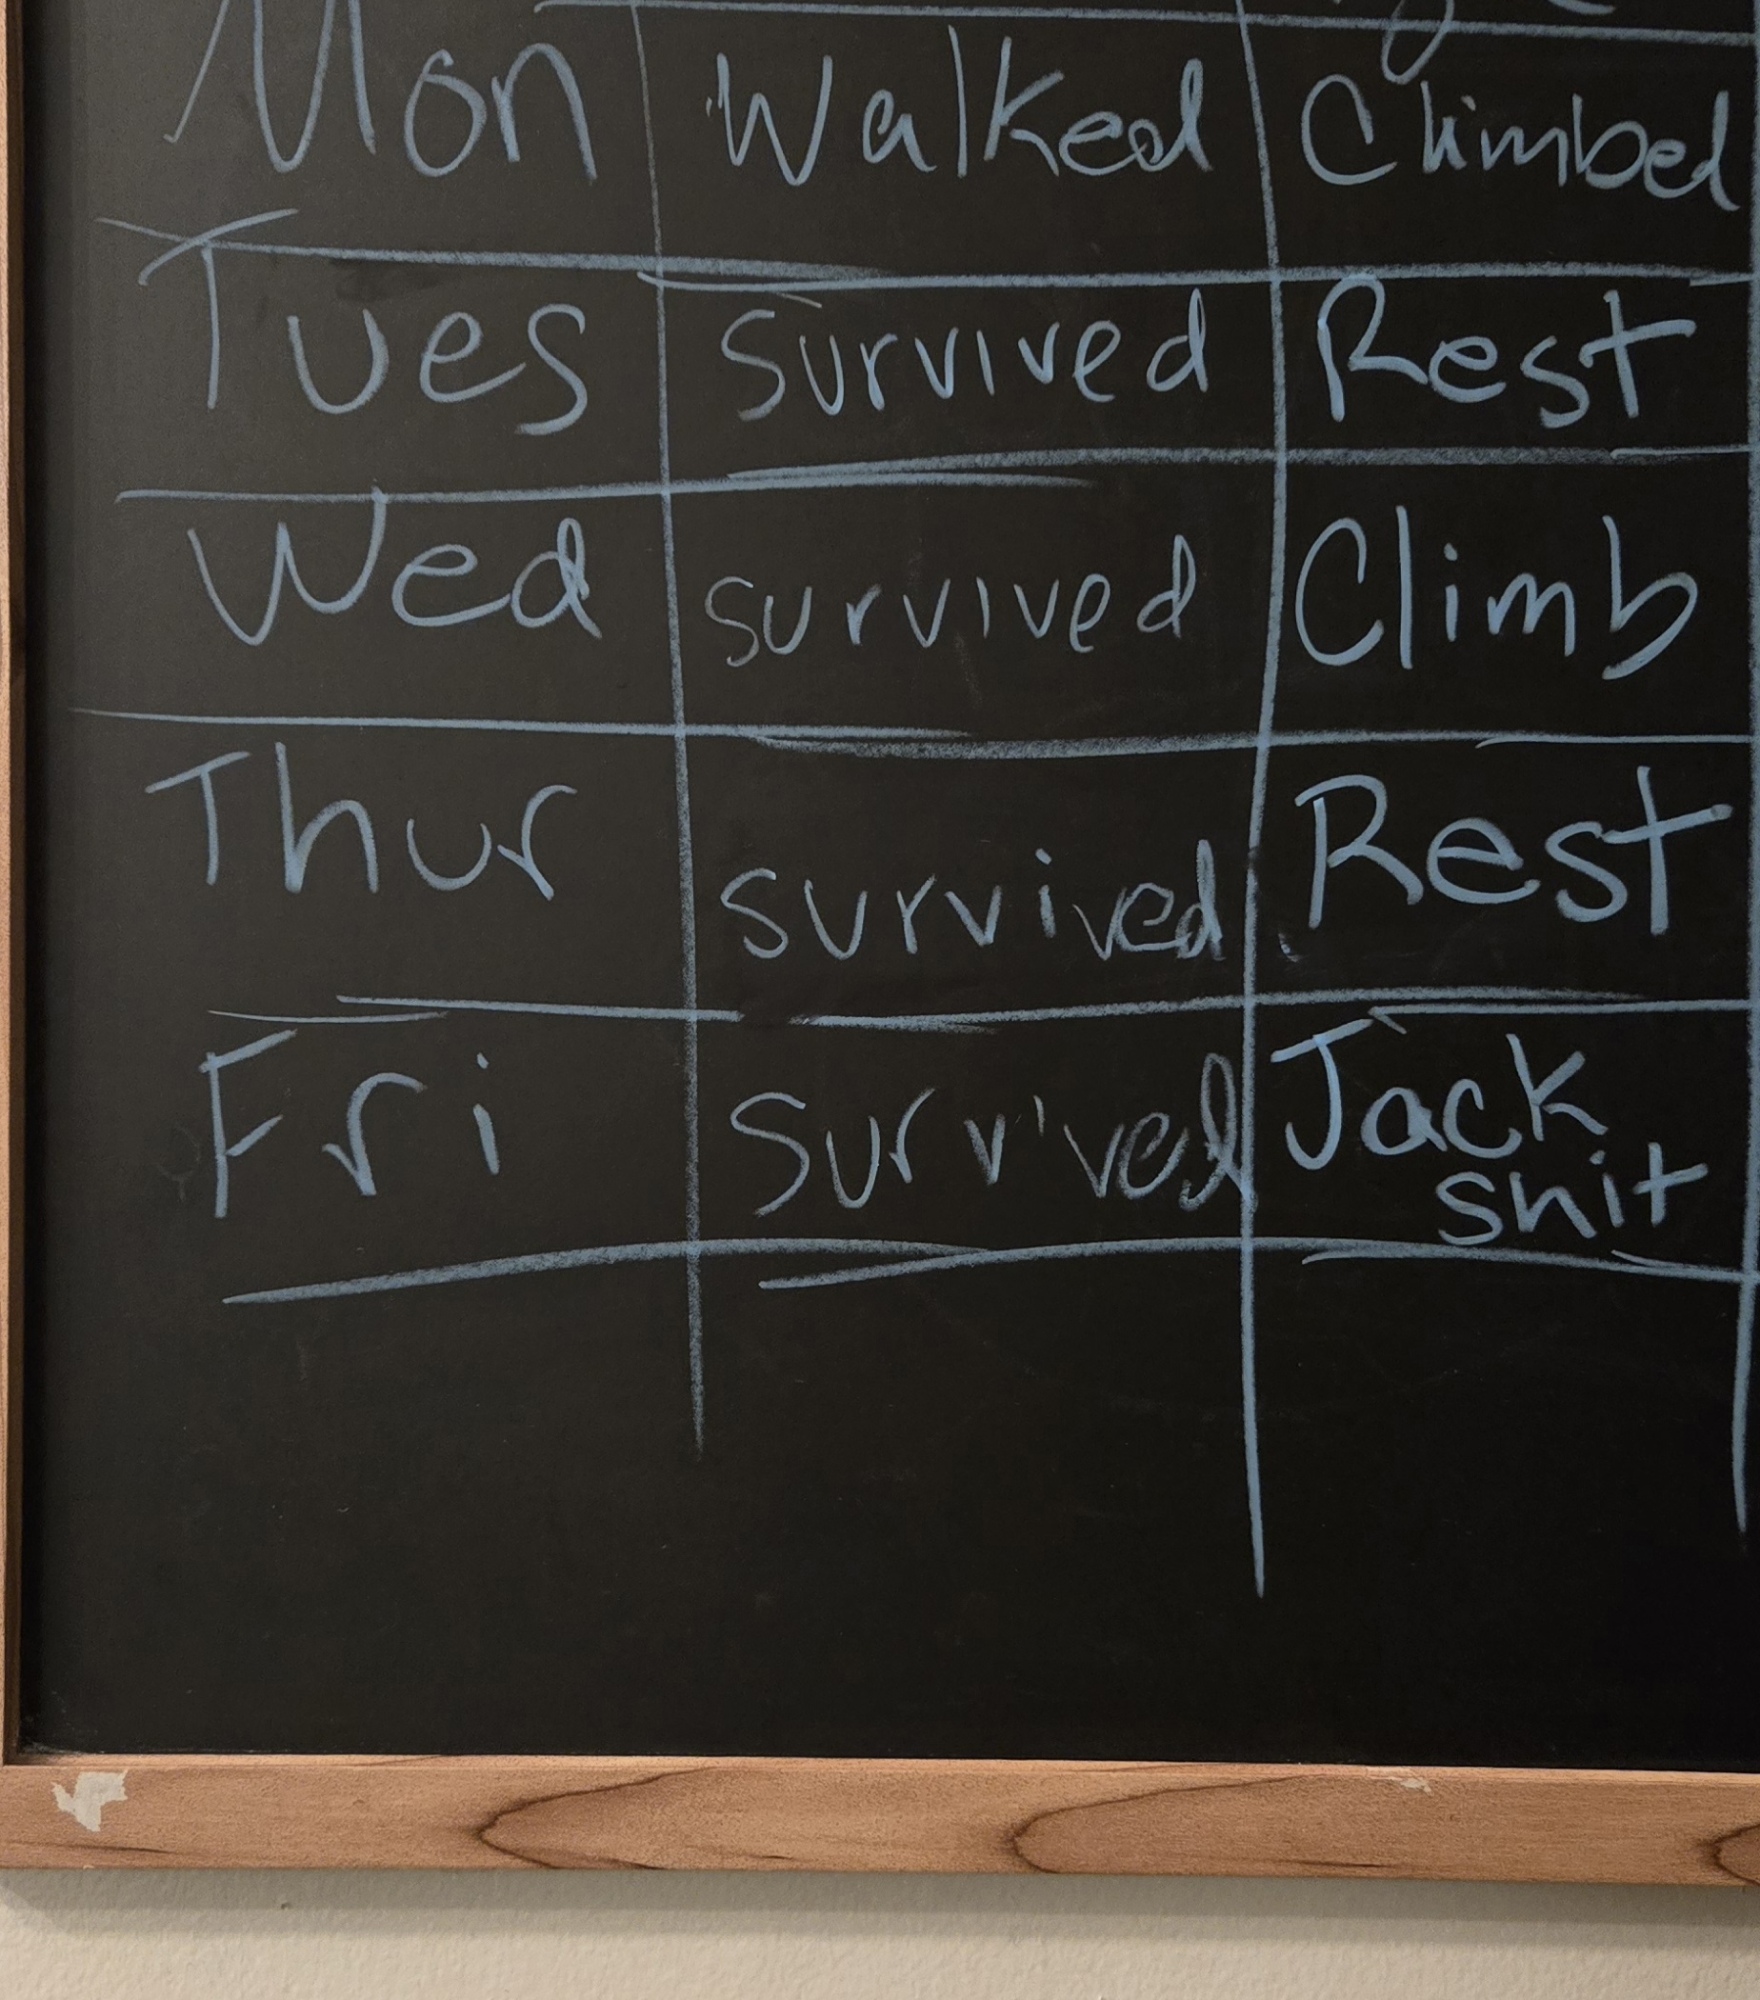 Mon Walked Climbed
Tues Survived Rest
Wed survived Climb
Thur survived Rest
Fri Survived Jack
shit